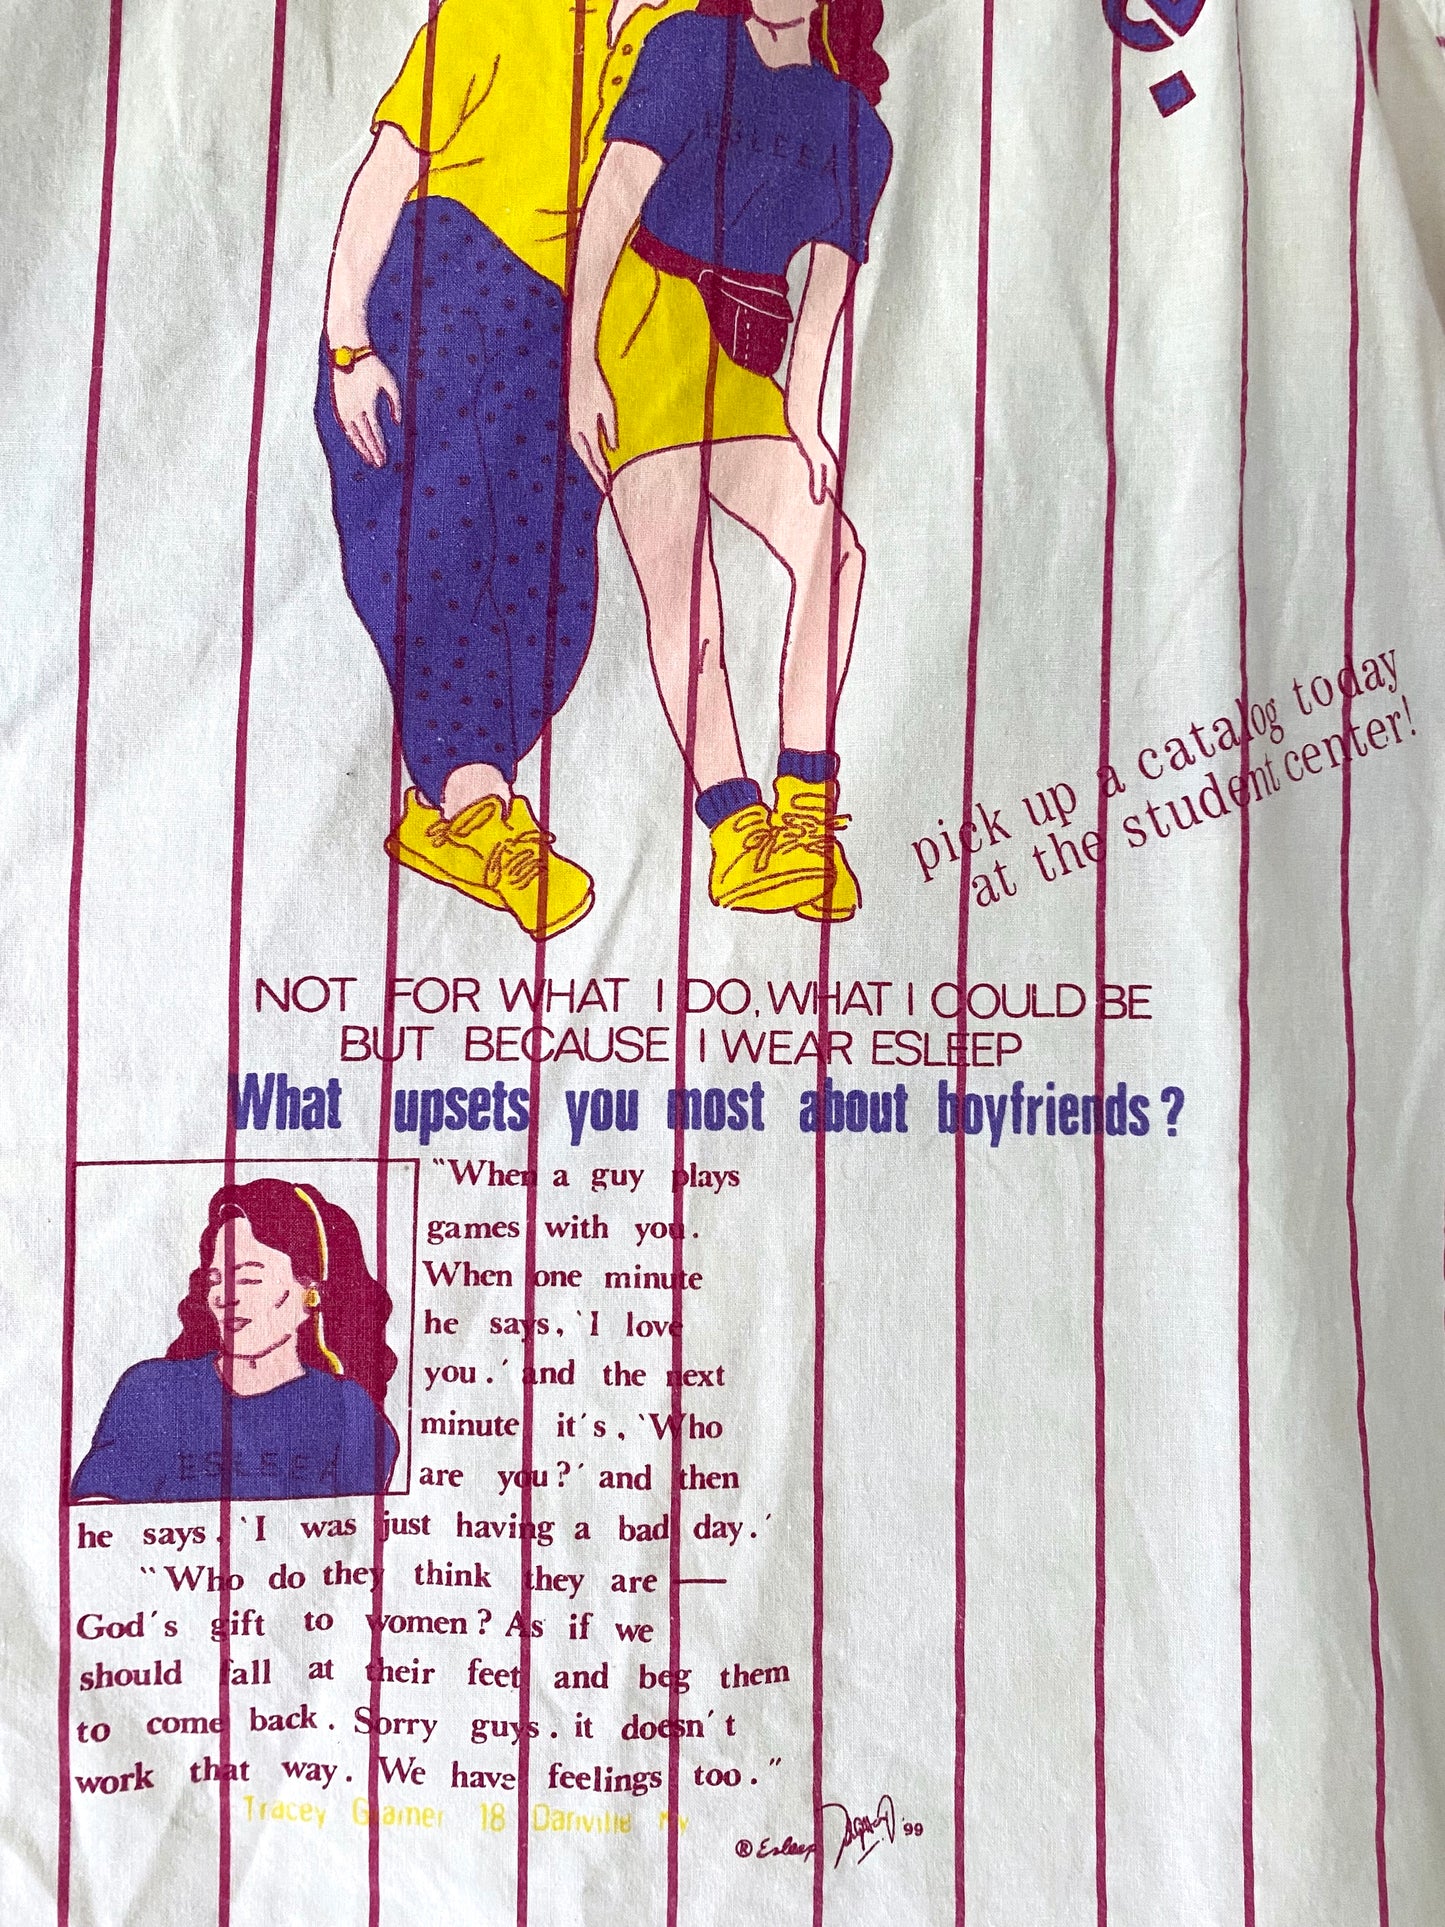 ESLEEA
pick up a catalog today
at the student center!
NOT FOR WHAT I DO, WHAT I COULD BE
BUT BECAUSE I WEAR ESLEEP
What upsets you most about boyfriends?
"When a guy plays
games with you.
When one minute
he says, 'I love
you.' and the next
minute it's, 'Who
are you?' and then
he says, 'I was just having a bad day.'
"Who do they think they are —
God's gift to women? As if we
should fall at their feet and beg them
to come back. Sorry guys. it doesn't
work that way. We have feelings too."
ESLEEA
Tracey 18 Danville
® Esleep '99